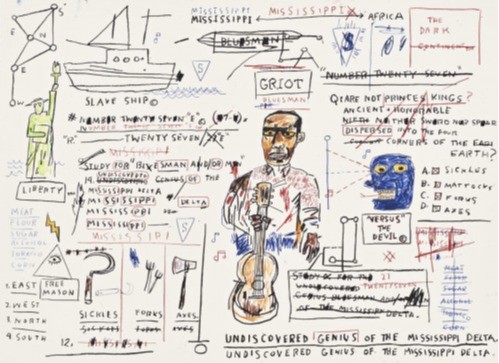 MISSISSIPPI
MISSISSIPPI
MISSISSIPPI
AFRICA
THE
DARK
CONTINENT
N
S
E
W
BLUESMAN
S
S
SLAVE SHIP©
GRIOT
BLUESMAN
"NUMBER TWENTY SEVEN"
# NUMBER TWENTY SEVEN "E"
NUMBER TWENTY SEVEN
"R"
TWENTY SEVEN
STUDY FOR BLUESMAN AND/OR
UNDISCOVERED
GENIUS OF THE
MISSISSIPPI DELTA
MISSISSIPPI
MISSISSIPPI
MISSISSIPPI
DELTA
MISSISSIPPI
LIBERTY
Q: ARE NOT PRINCES KINGS?
ANCIENT + HONORABLE
NITH NEITHER SWORD NOR SPEAR
DISPERSED INTO THE FOUR
CORNERS OF THE EARTH
EARTH?
A. SICKLES
B. MATTOCKS
C. FORKS
D. AXES
"VERSUS"
THE
DEVIL©
MEAT
FLOUR
SUGAR
ALCOHOL
TOBACCO
CORN
1. EAST
2. WEST
3. NORTH
4. SOUTH
FREE
MASON
SICKLES
FORKS
AXES
12.
STUDY FOR THE
27
UNDISCOVERED
TWENTYSEVEN
GENIUS BLUESMAN AND/OR
OF THE MISSISSIPPI DELTA.
MEAT
FLOUR
SUGAR
ALCOHOL
TOBACCO
CORN
UNDISCOVERED GENIUS OF THE MISSISSIPPI DELTA.
UNDISCOVERED GENIUS OF THE MISSISSIPPI DELTA.